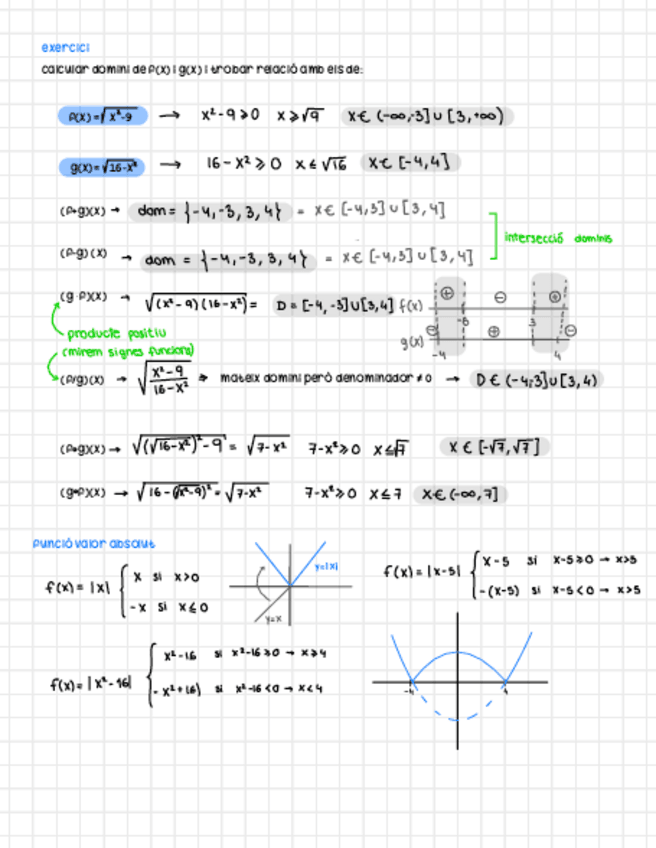 exercici
calcular domini de f(x) i g(x) i trobar relació amb els de:
f(x)=√x²-9 → x²-9≥0 x≥√9 x∈ (-∞,-3]∪[3,+∞)
g(x)=√16-x² → 16-x²≥0 x≤√16 x∈ [-4,4]
(f+g)(x) → dom = {-4,-3,3,4} = x∈ [-4,3]∪[3,4]
intersecció dominis
(f-g)(x) → dom = {-4,-3,3,4} = x∈ [-4,3]∪[3,4]
(g·f)(x) → √(x²-9)(16-x²) = D = [-4,-3]∪[3,4] f(x) ⊕ ⊖ ⊕
-3 3
g(x) ⊖ ⊕ ⊖
-4 4
producte positiu
(mirem signes funcions)
(f/g)(x) → √x²-9/16-x² → mateix domini però denominador ≠0 → D∈ (-4,-3]∪[3,4)
(f∘g)(x) → √(√16-x²)²-9 = √7-x² 7-x²≥0 x≤√7 x∈ [-√7,√7]
(g∘f)(x) → √16-(√x²-9)² = √7-x² 7-x²≥0 x≤7 x∈ (-∞,7]
funció valor absolut
f(x)=|x| { x si x>0
-x si x≤0
y=|x|
y=x
f(x)=|x-5| { x-5 si x-5≥0 → x>5
-(x-5) si x-5<0 → x>5
f(x)=|x²-16| { x²-16 si x²-16≥0 → x≥4
-x²+16) si x²-16<0 → x<4
-4 4